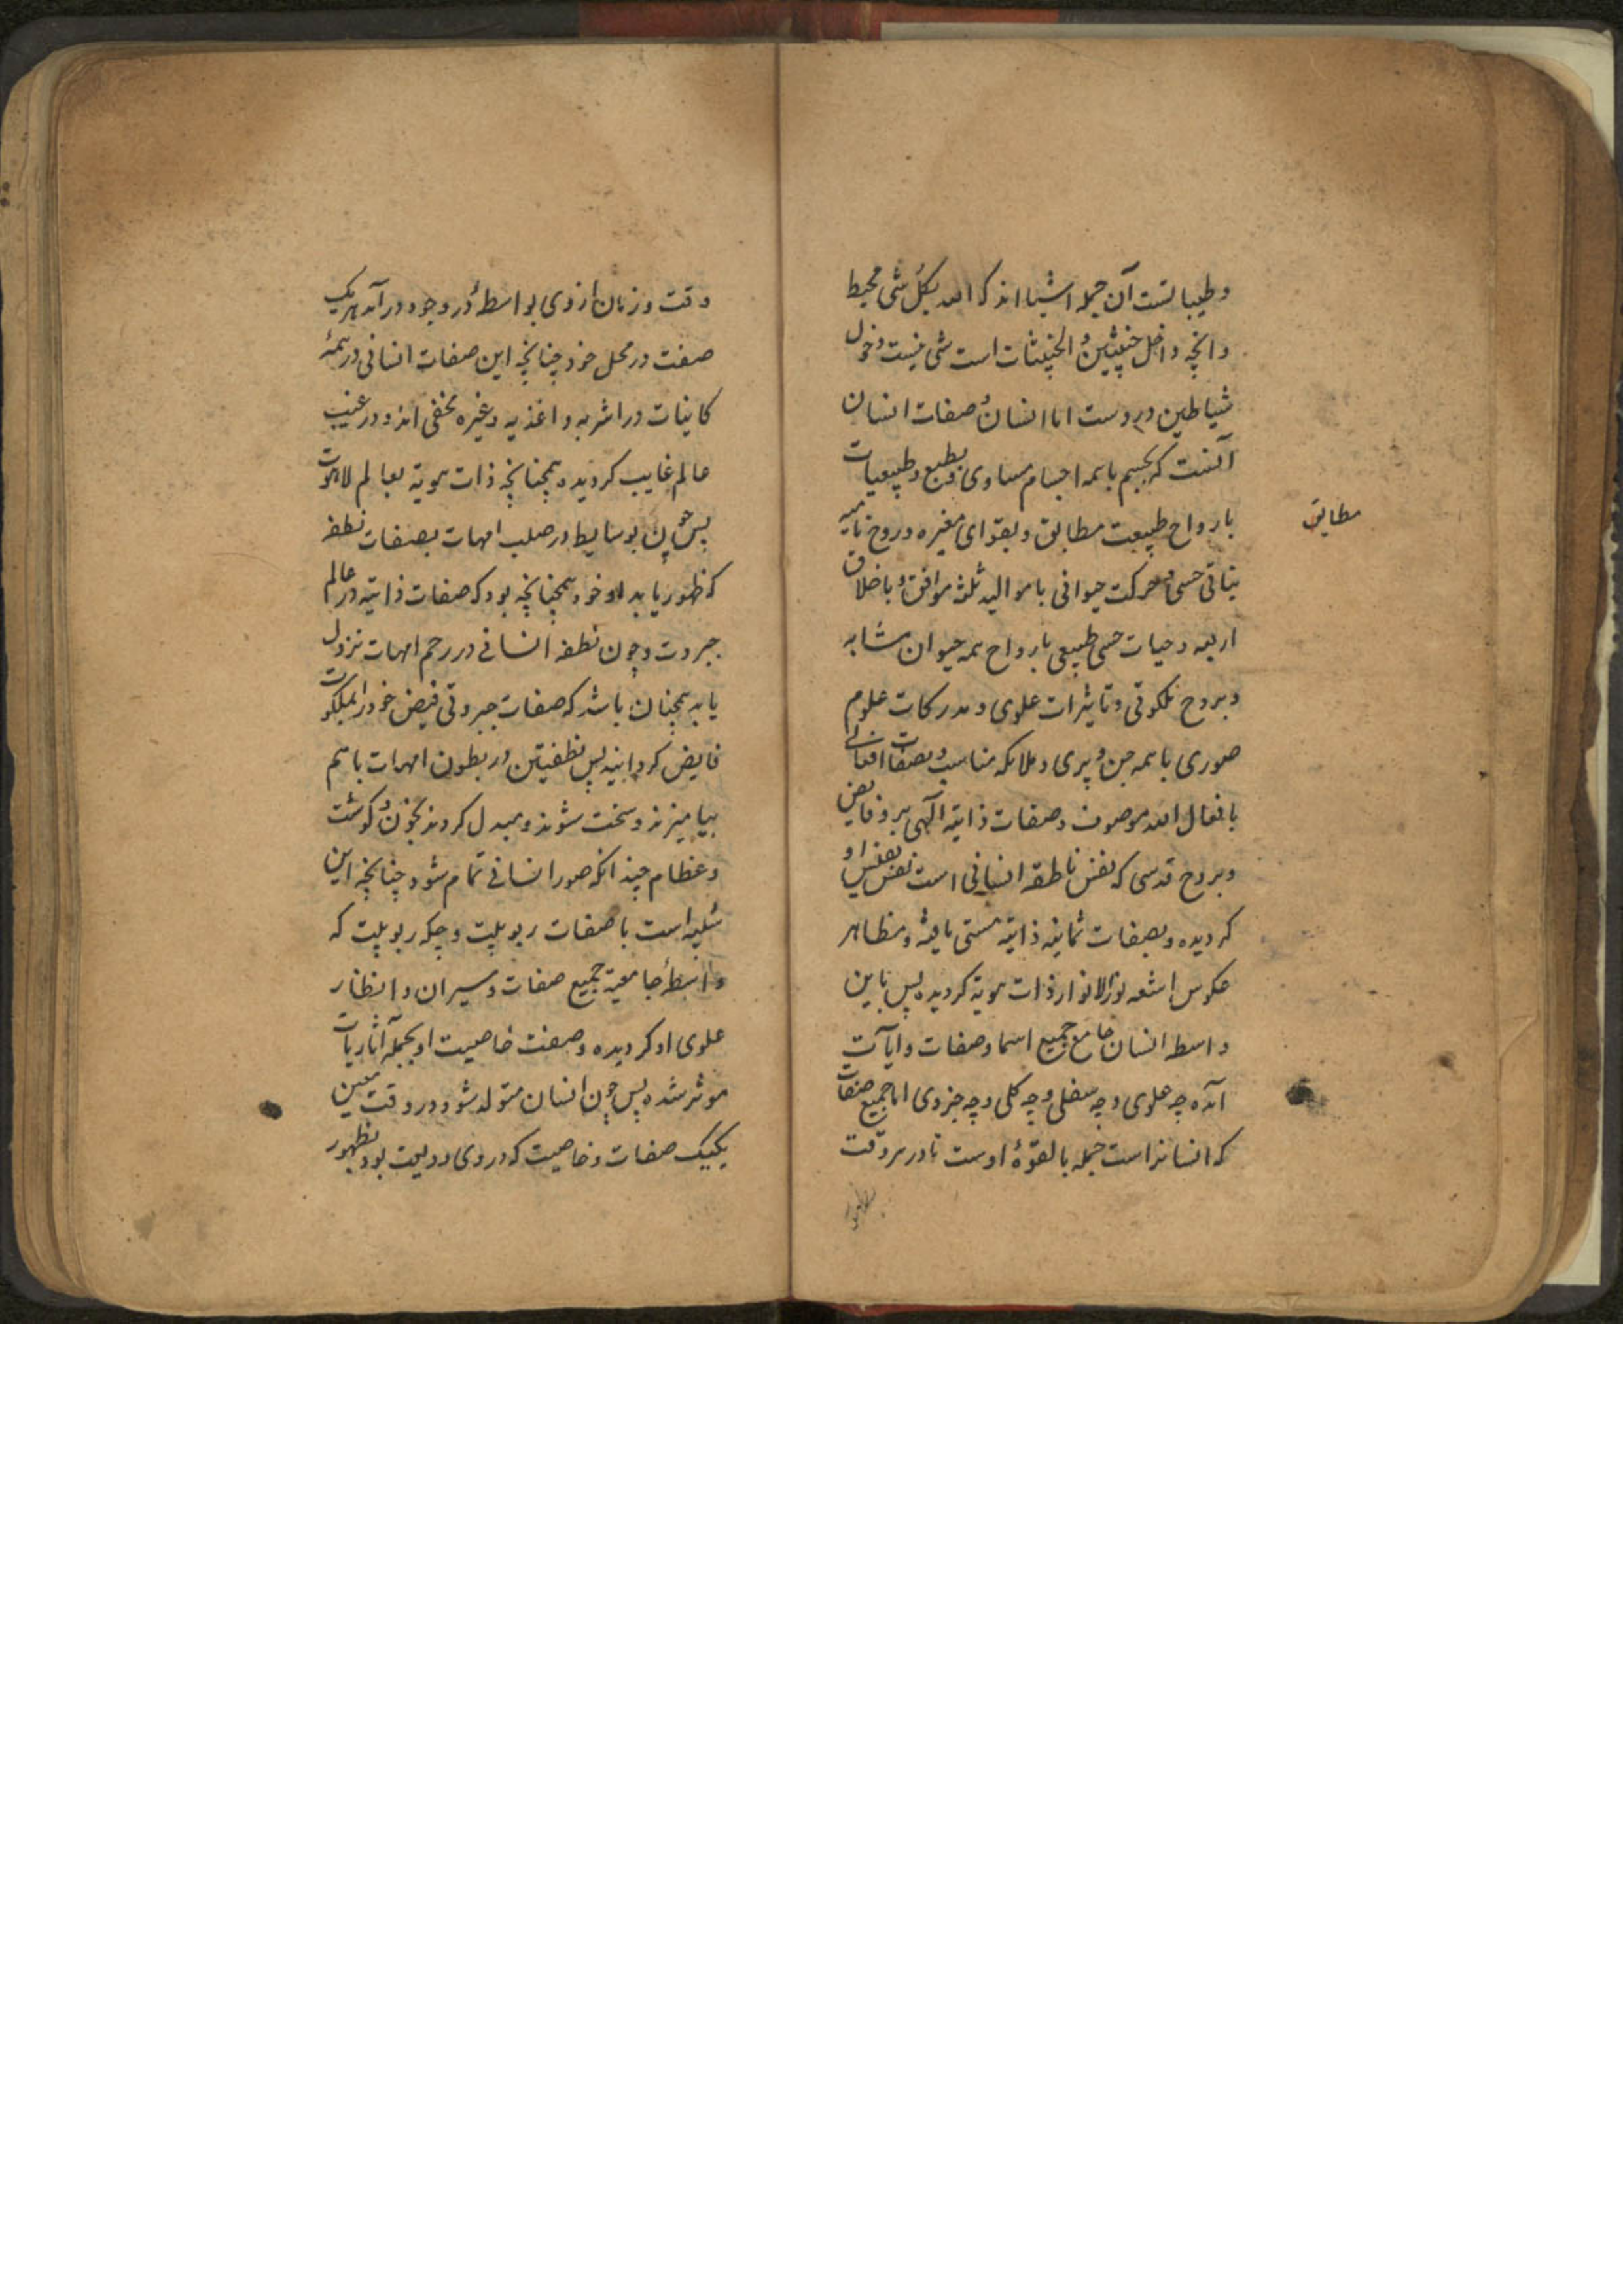 و طیباتست آن جمله اشیا اند که الله بکل شی محیط
و انچه داخل خبیثین و الخبیثات است شی نیست دخول
شیاطین دروست اما انسان و صفات انسان
آنست که بجسم باهمه اجسام مساوی و بطبع و طبیعیات
بارواح طبیعت مطابق و بقوای مغیره و روح نامیه
نباتی حسی و حرکت حیوانی با موالید ثلث موافق و باخلاق
اربعه و حیات حسی طبیعی بارواح همه حیوان مشابه
و بروح ملکوتی و تاثیرات علوی و مدرکات علوم
صوری باهمه جن و پری و ملایکه مناسب و بصفات افعالی
بافعال الله موصوف و صفات ذاتیه الهی برو فایض
و بروح قدسی که نفس ناطقه انسانی است نفس بنفس او
کردیده و بصفات ثمانیه ذاتیه هستی یافته و مظاهر
عکوس اشعه نور الانوار ذات هویة کردیده پس باین
واسطه انسان جامع جمیع اسما و صفات و ایات
آمده چه علوی و چه سفلی و چه کلی و چه جزوی اما جمیع صفات
که انسانراست جمله بالقوهٔ اوست تا در هر وقت
مطابق
وقت و زمان از وی بواسطهٔ در وجود در آمد هر یک
صفت در محل خود چنانچه این صفات انسانی در همهٔ
کاینات در اشربه و اغذیه و غیره مخفی اند و در غیب
عالم غایب کردیده همچنانچه ذات هویة بعالم لاهوت
پس چون بوسایط در صلب امهات بصفات نطفه
که ظهور یابد خود همچنانچه بود که صفات ذاتیه در عالم
جبروت و چون نطفه انسانی در رحم امهات نزول
یابد همچنان باشد که صفات جبروتی فیض خود را بملکوت
فایض کردانید پس نطفتین در بطون امهات باهم
بیامیزند و سخت شوند و مبدل کردند بخون و کوشت
و عظام چندانکه صور انسانی تمام شود چنانچه این
است با صفات ربوبیت و چکه ربوبیت که
واسطهٔ جامعیة جمیع صفات و سیران و انظار
علوی او کردیده و صفت خاصیت او بجمله آثاریات
موثر شده پس چون انسان متولد شود در وقت معین
یکیک صفات و خاصیت که در وی ودیعت بود بظهور